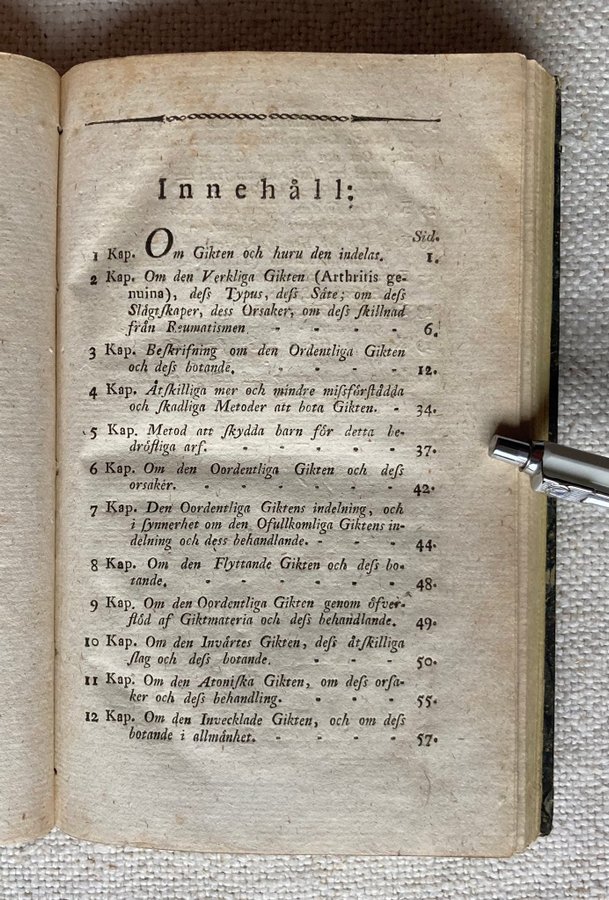 Innehåll:
Sid.
1 Kap. Om Gikten och huru den indelas. 1.
2 Kap. Om den Verkliga Gikten (Arthritis ge-
nuina), deſs Typus, deſs Såte; om deſs
Slågtſkaper, dess Orsaker, om deſs ſkillnad
från Reumatismen - - - - 6.
3 Kap. Beſkrifning om den Ordentliga Gikten
och deſs botande. - - - - 12.
4 Kap. Åtſkilliga mer och mindre miſsförſtådda
och ſkadliga Metoder att bota Gikten. - 34.
5 Kap. Metod att ſkydda barn för detta be-
dröfliga arf. - - - - - 37.
6 Kap. Om den Oordentliga Gikten och deſs
orsaker. - - - - - - 42.
7 Kap. Den Oordentliga Giktens indelning, och
i ſynnerhet om den Ofullkomliga Giktens in-
delning och dess behandlande. - - - 44.
8 Kap. Om den Flyttande Gikten och deſs bo-
tande. - - - - - - 48.
9 Kap. Om den Oordentliga Gikten genom öfver-
flöd af Giktmateria och deſs behandlande. 49.
10 Kap. Om den Invårtes Gikten, deſs åtſkilliga
ſlag och deſs botande. - - - 50.
11 Kap. Om den Atoniſka Gikten, om deſs orſa-
ker och deſs behandling. - - - 55.
12 Kap. Om den Invecklade Gikten, och om deſs
botande i allmånhet. - - - - 57.